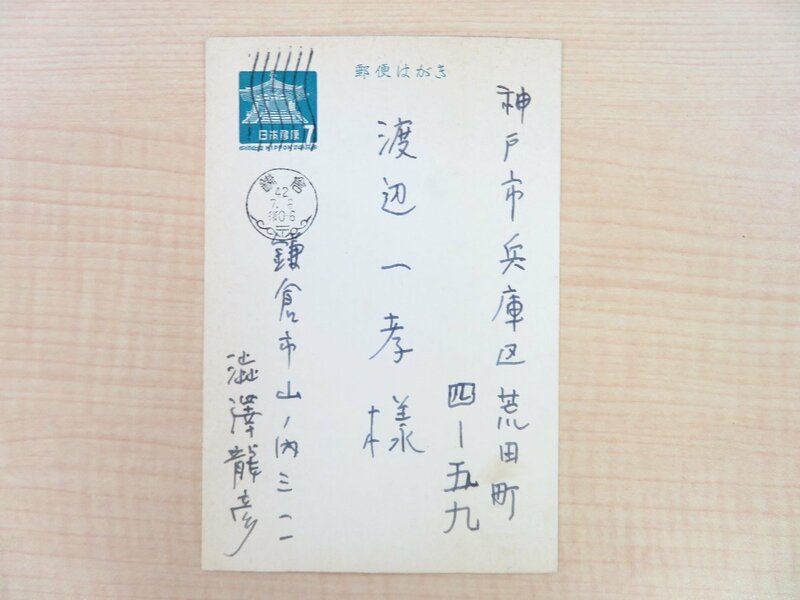 郵便はがき
神戸市兵庫区荒田町
四ー五九
渡辺一孝様
鎌倉市山ノ内三一一
澁澤龍彦
日本郵便 7
NIPPON
鎌倉
42